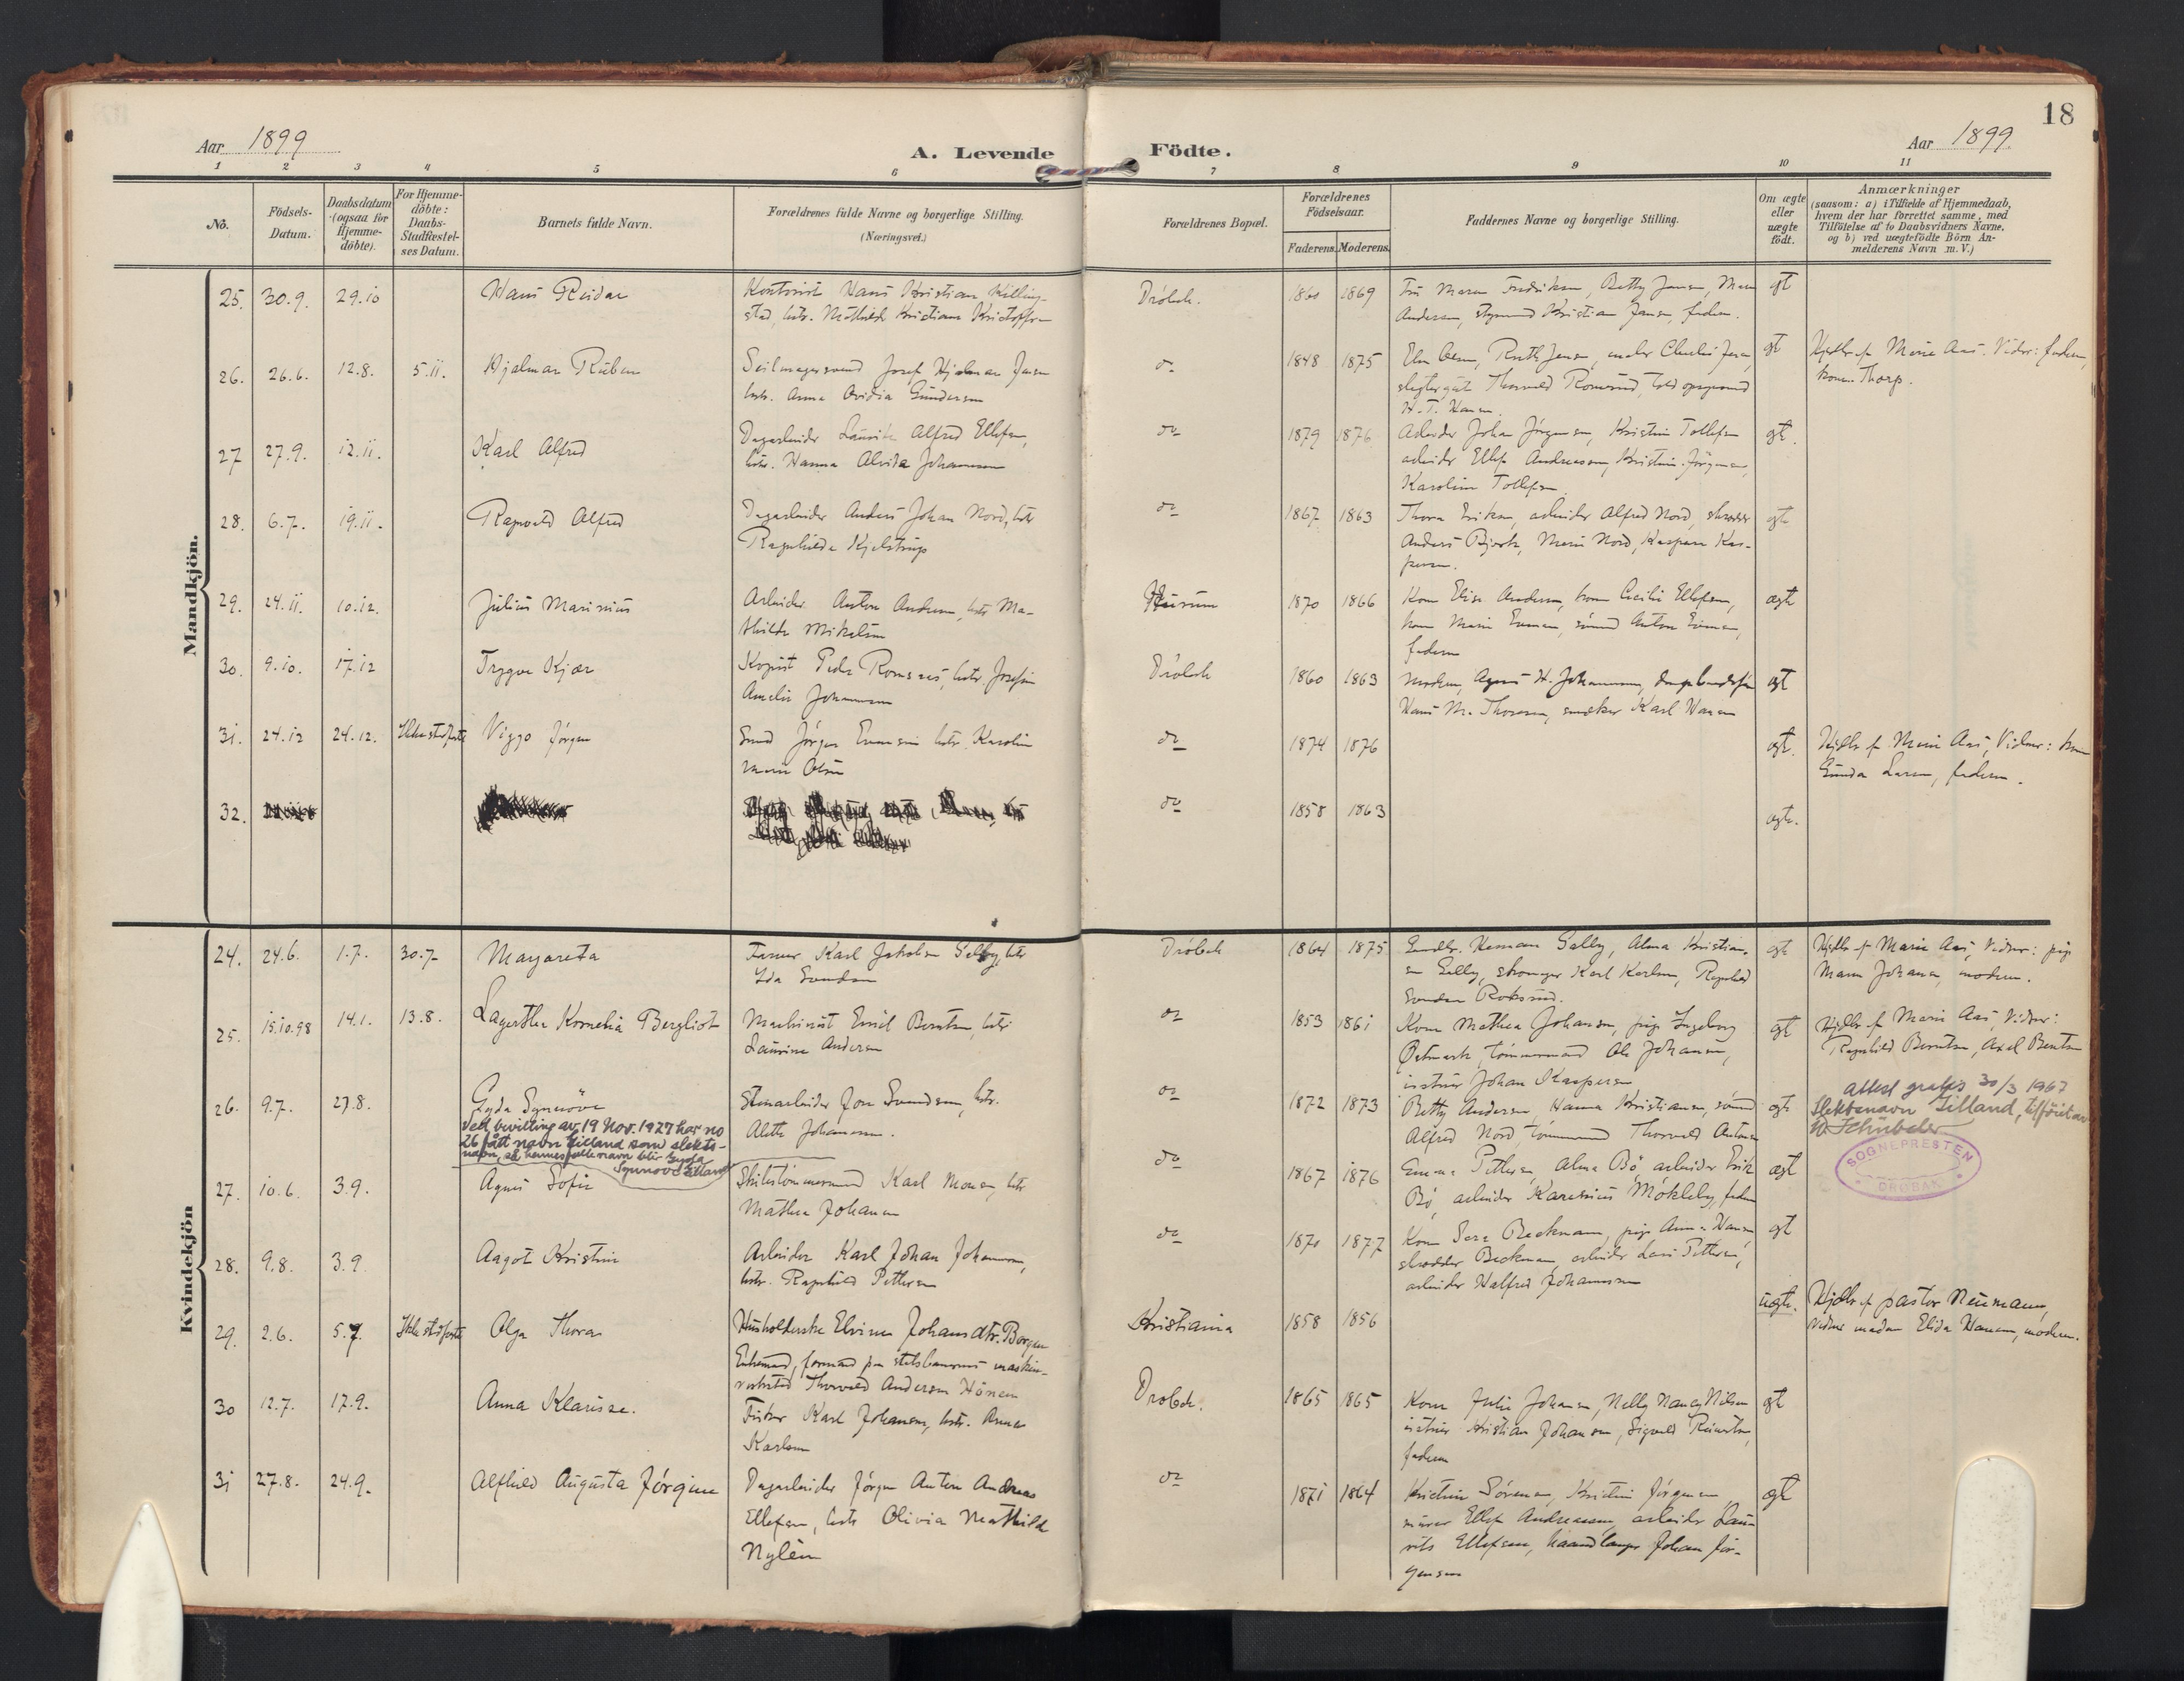 18
Aar 1899
A. Levende
Födte.
Aar 1899.
1 2 3 4 5 6 7 8 9 10 11
No.
Födsels-
Datum.
Daabsdatum
(ogsaa for
Hjemme-
döbte).
For Hjemme-
döbte:
Daabs-
Stadfæstel-
ses Datum.
Barnets fulde Navn.
Forældrenes fulde Navne og borgerlige Stilling.
(Næringsvei.)
Forældrenes Bopæl.
Forældrenes
Födselsaar.
Faderens. Moderens.
Faddernes Navne og borgerlige Stilling.
Om ægte
eller
uægte
födt.
Anmærkninger
(saasom: a) i Tilfælde af Hjemmedaab,
hvem der har forrettet samme, med
Tilföielse af to Daabsvidners Navne,
og b) ved uægtefödte Börn An-
melderens Navn m. V.)
Mandkjön.
25. 30.9. 29.10 Hans Reidar
Kontorist Hans Kristian Killing-
stad, hstr. Mathilde Kristiane Kristoffersen
Dröbak. 1860 1869
Fru Maren Fredriksen, Betty Jensen, Maren
Andersen, styrmand Kristian Jensen, faderen.
ægt
26. 26.6. 12.8. 5.11. Hjalmar Ruben
Seilmagersvend Josef Hjalmar Jensen
hstr. Anna Ovidia Gundersen
do 1848 1875
Ruth Jensen, maler Jensen
Thorvald Romsund, toldopsynsmand
H. T. Hansen.
ægt
Hjdbt. af Marie Aas. Vidner: faderen,
kone Thorp.
27 27.9. 12.11. Karl Alfred
Dagarbeider Lauritz Alfred Ellefsen,
hstr. Hanna Alvida Johannessen
do 1879 1876
Arbeider Johan Jörgensen, Kristine Tollefsen
arbeider Ellef Andreassen, Kristine Jörgensen,
Karoline Tollefsen.
ægt.
28. 6.7. 19.11. Ragnvald Alfred
Dagarbeider Anders Johan Nord, hstr
Ragnhilda Kjelstrup
do 1867 1863
Thora Eriksen, arbeider Alfred Nord, skrædder
Anders Bjerk, Marie Nord, Kaspara Kas-
persen.
ægt
29. 24.11. 10.12. Julius Marinius
Arbeider Anton Andersen, hstr Ma-
thilde Mikelsen
Hurum 1870 1866
Kone Elise Andersen, kone Cecilie Ellefsen,
kone Marie Evensen, sömand Anton Evensen,
faderen
ægte
30. 9.10. 17.12 Trygve Kjær
Kopist Peder Romsaas, hstr. Josefine
Amalie Johannessen
Dröbak 1860 1863
Moderen, Agnes H. Johannessen,
Hans M. Thoresen, snedker Karl Hansen
ægt
31. 24.12 24.12. Ikke stadfæstet Viggo Jörgen
Smed Jörgen Evensen hstr. Karoline
Marie Olsen
do 1874 1876
ægte.
Hjdbt. af Marie Aas, Vidner: kone
Gunda Larsen, faderen.
32.
do 1858 1863
ægte.
Kvindekjön
24. 24.6. 1.7. 30.7 Margareta
Farver Karl Jakobsen Galby, hstr
Ida Svendsen
Dröbak 1864 1875
Gaardbr. Herman Galby, Alma Kristian-
sen Galby, skomager Karl Karlsen, Ragnhild
Svendsen Roksrud.
ægte
Hjdbt. af Marie Aas, Vidner: pige
Maren Johansen, moderen.
25. 15.10.98 14.1. 13.8. Lagertha Kornelia Bergliot
Maskinist Emil Berntsen, hstr
Laurine Andersen
do 1853 1861
Kone Mathea Johansen, pige Ingeborg
Östmark, tömmermand Ole Johansen,
istruer Johan Kaspersen
ægt
Hjdbt. af Marie Aas, Vidner:
Ragnhild Berntsen, Axel Berntsen
26. 9.7. 27.8. Gyda Synnöve
Ved bevilling av 19 Nov. 1927 har no
26 fått navn Gilland som slekts-
navn, så hennes fulle navn blir Gyda
Synnöve Gilland
Stenarbeider Jon Svendsen, hstr.
Aleth Johannessen.
do 1872 1873
Betty Andersen, Hanna Kristiansen, sömand
Alfred Nord, tömmermand Thorvald Antonsen
ægte
Attest gratis 30/3 1967
Slektsnavn Gilland, tilföiet av
W. Schübeler
SOGNEPRESTEN
DRØBAK
27. 10.6. 3.9. Agnes Sofie
Skibstömmermand Karl Monsen, hstr
Mathea Johansen
do 1867 1876
Emma Pettersen, Alma Bö, arbeider Erik
Bö, arbeider Karenius Mökleby, faderen
ægt
28. 9.8. 3.9. Aagot Kristine
Arbeider Karl Johan Johannessen,
hstr. Ragnhild Pettersen
do 1870 1877
Kone Sara Beckmann, pige Anna Hansen
skrædder Beckman, arbeider Lars Pettersen,
arbeider Halfred Johannessen
ægt
29. 2.6. 5.7. Ikke stadfæstet Olga Thora
Husholderske Elvine Johansdtr. Borgen
Enkemand, formand paa statsbanernes maskin-
verksted Thorvald Andersen Hönen
Kristiania 1858 1856
uægte.
Hjdbt. af pastor Neumann,
Vidner madam Elida Hansen, moderen.
30 12.7. 17.9. Anna Klarisse.
Fisker Karl Johansen, hstr. Anna
Karlsen
Dröbak. 1865 1865
Kone Julie Johansen, Nelly Nancy Nilsen
istruer Kristian Johansen, Sigvald Reinertsen,
faderen
ægt
31 27.8. 24.9. Alfhild Augusta Jörgine
Dagarbeider Jörgen Anton Andreas
Ellefsen, hstr Olivia Mathilde
Nylén
do 1871 1864
Kristine Sörensen, Kristine Jörgensen
murer Ellef Andreassen, arbeider Lau-
rits Ellefsen, haandlanger Johan Jör-
gensen
ægt